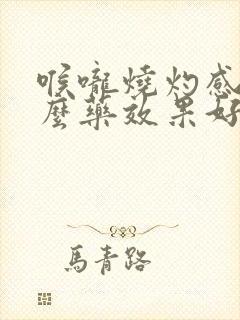 喉嚨燒灼感
麼藥效果好
馬青路